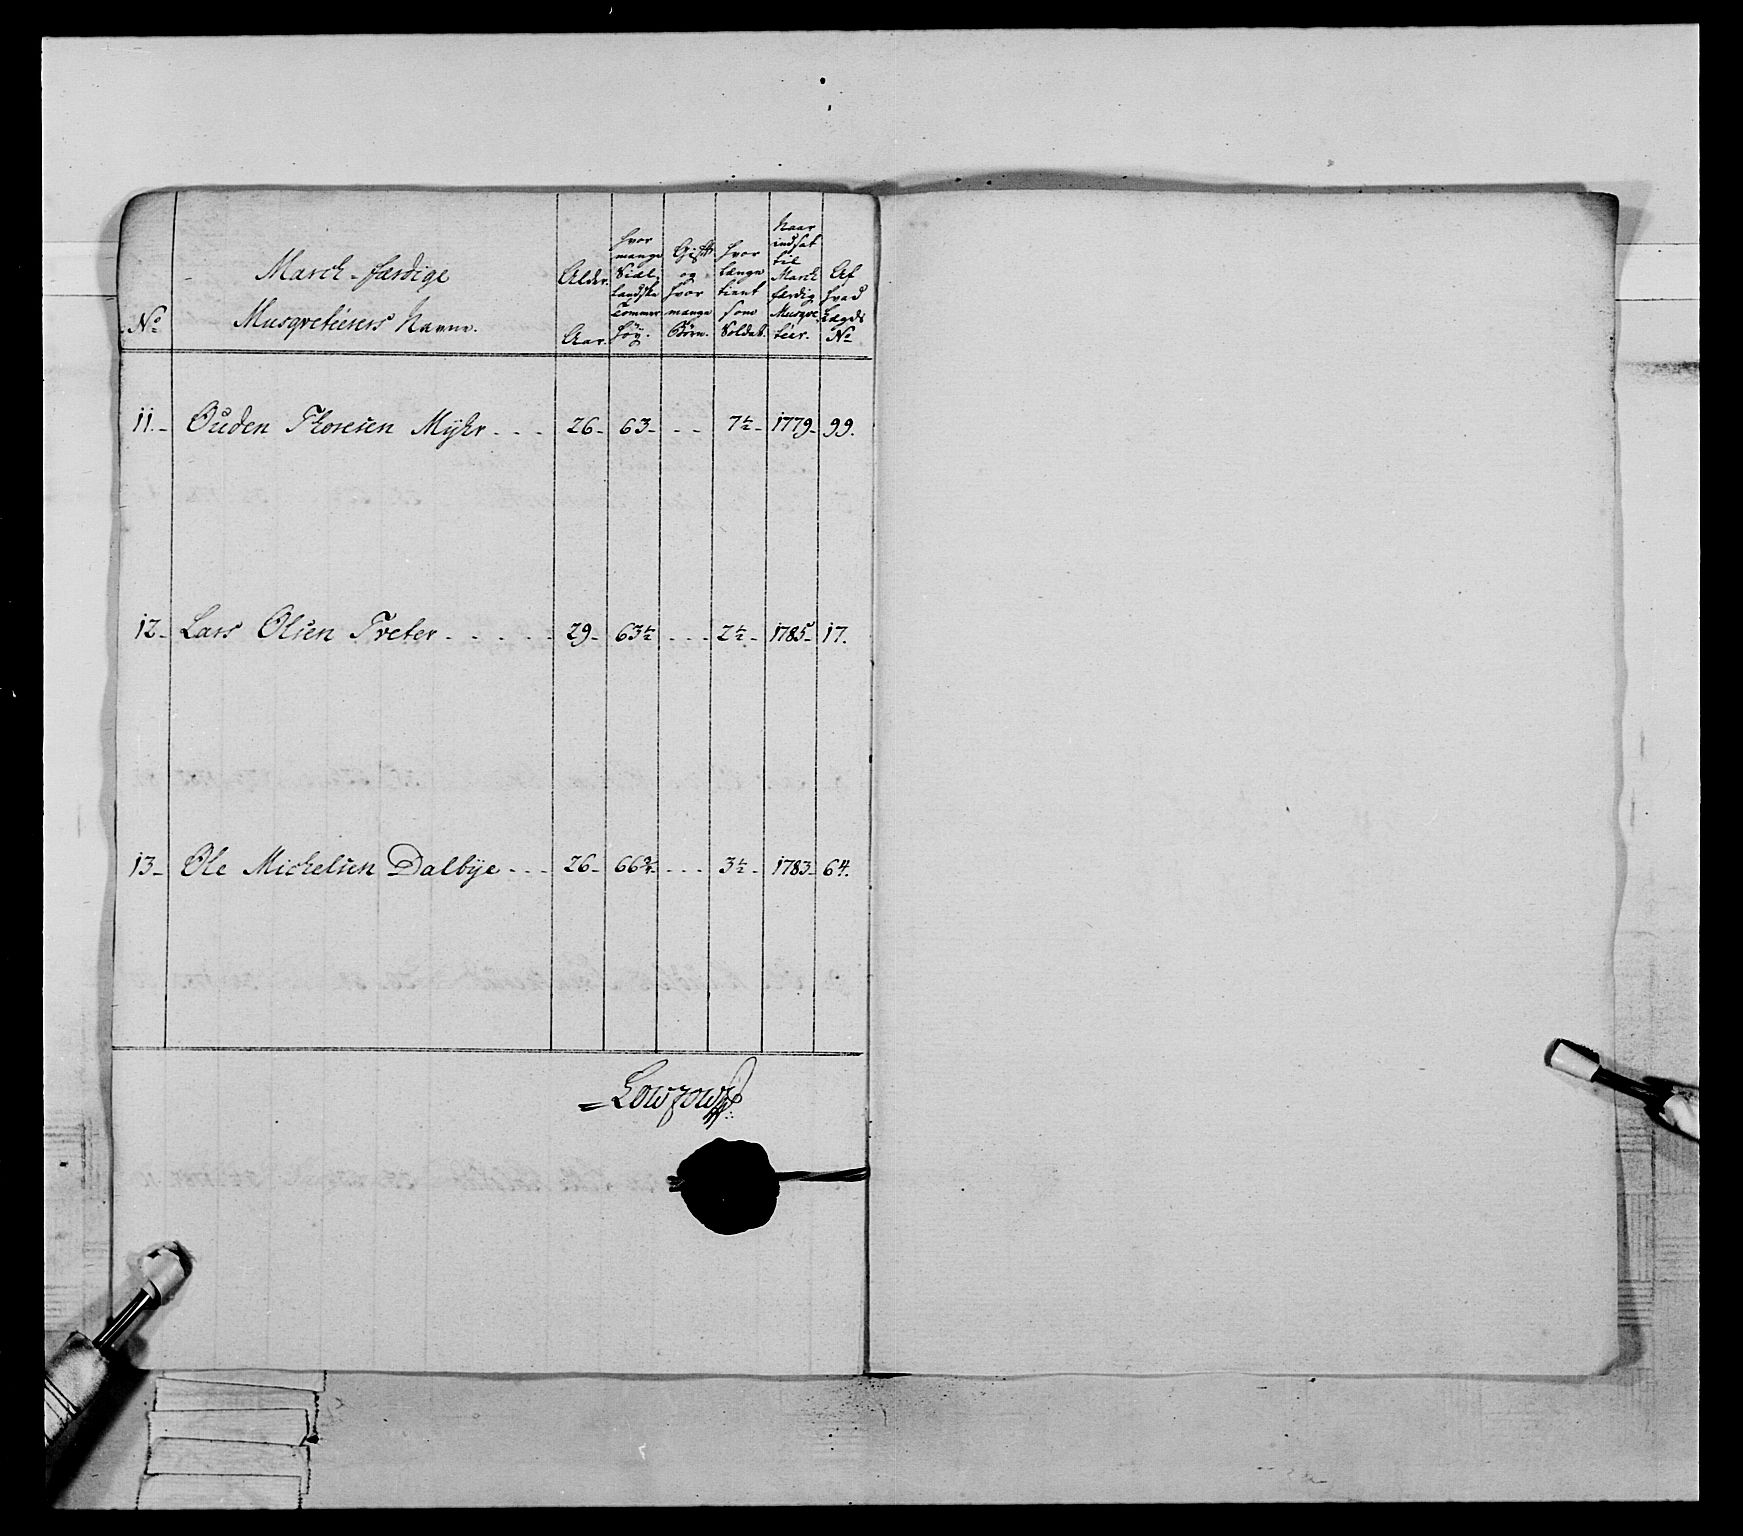 No
March-færdige
Musqvetiérers Navne.
Alder.
Aar.
hvor
mange
Siæl-
landske
Tommer
høy.
Gift
og
hvor
mange
Børn.
hvor
længe
tient
som
Soldat.
Naar
indsat
til
March
færdig
Musqve
téer.
Af
hvad
Lægds
No
11.- Ouden Thoresen Myhr - - - 26- 63- - - 7½- 1779- 99.
12.- Lars Olsen Treter - - - - - 29- 63½ - - - 2½- 1785- 17.
13.- Ole Michelsen Dalbÿe - - - 26- 66¾- - - - 3½- 1783- 64.
Lowzow